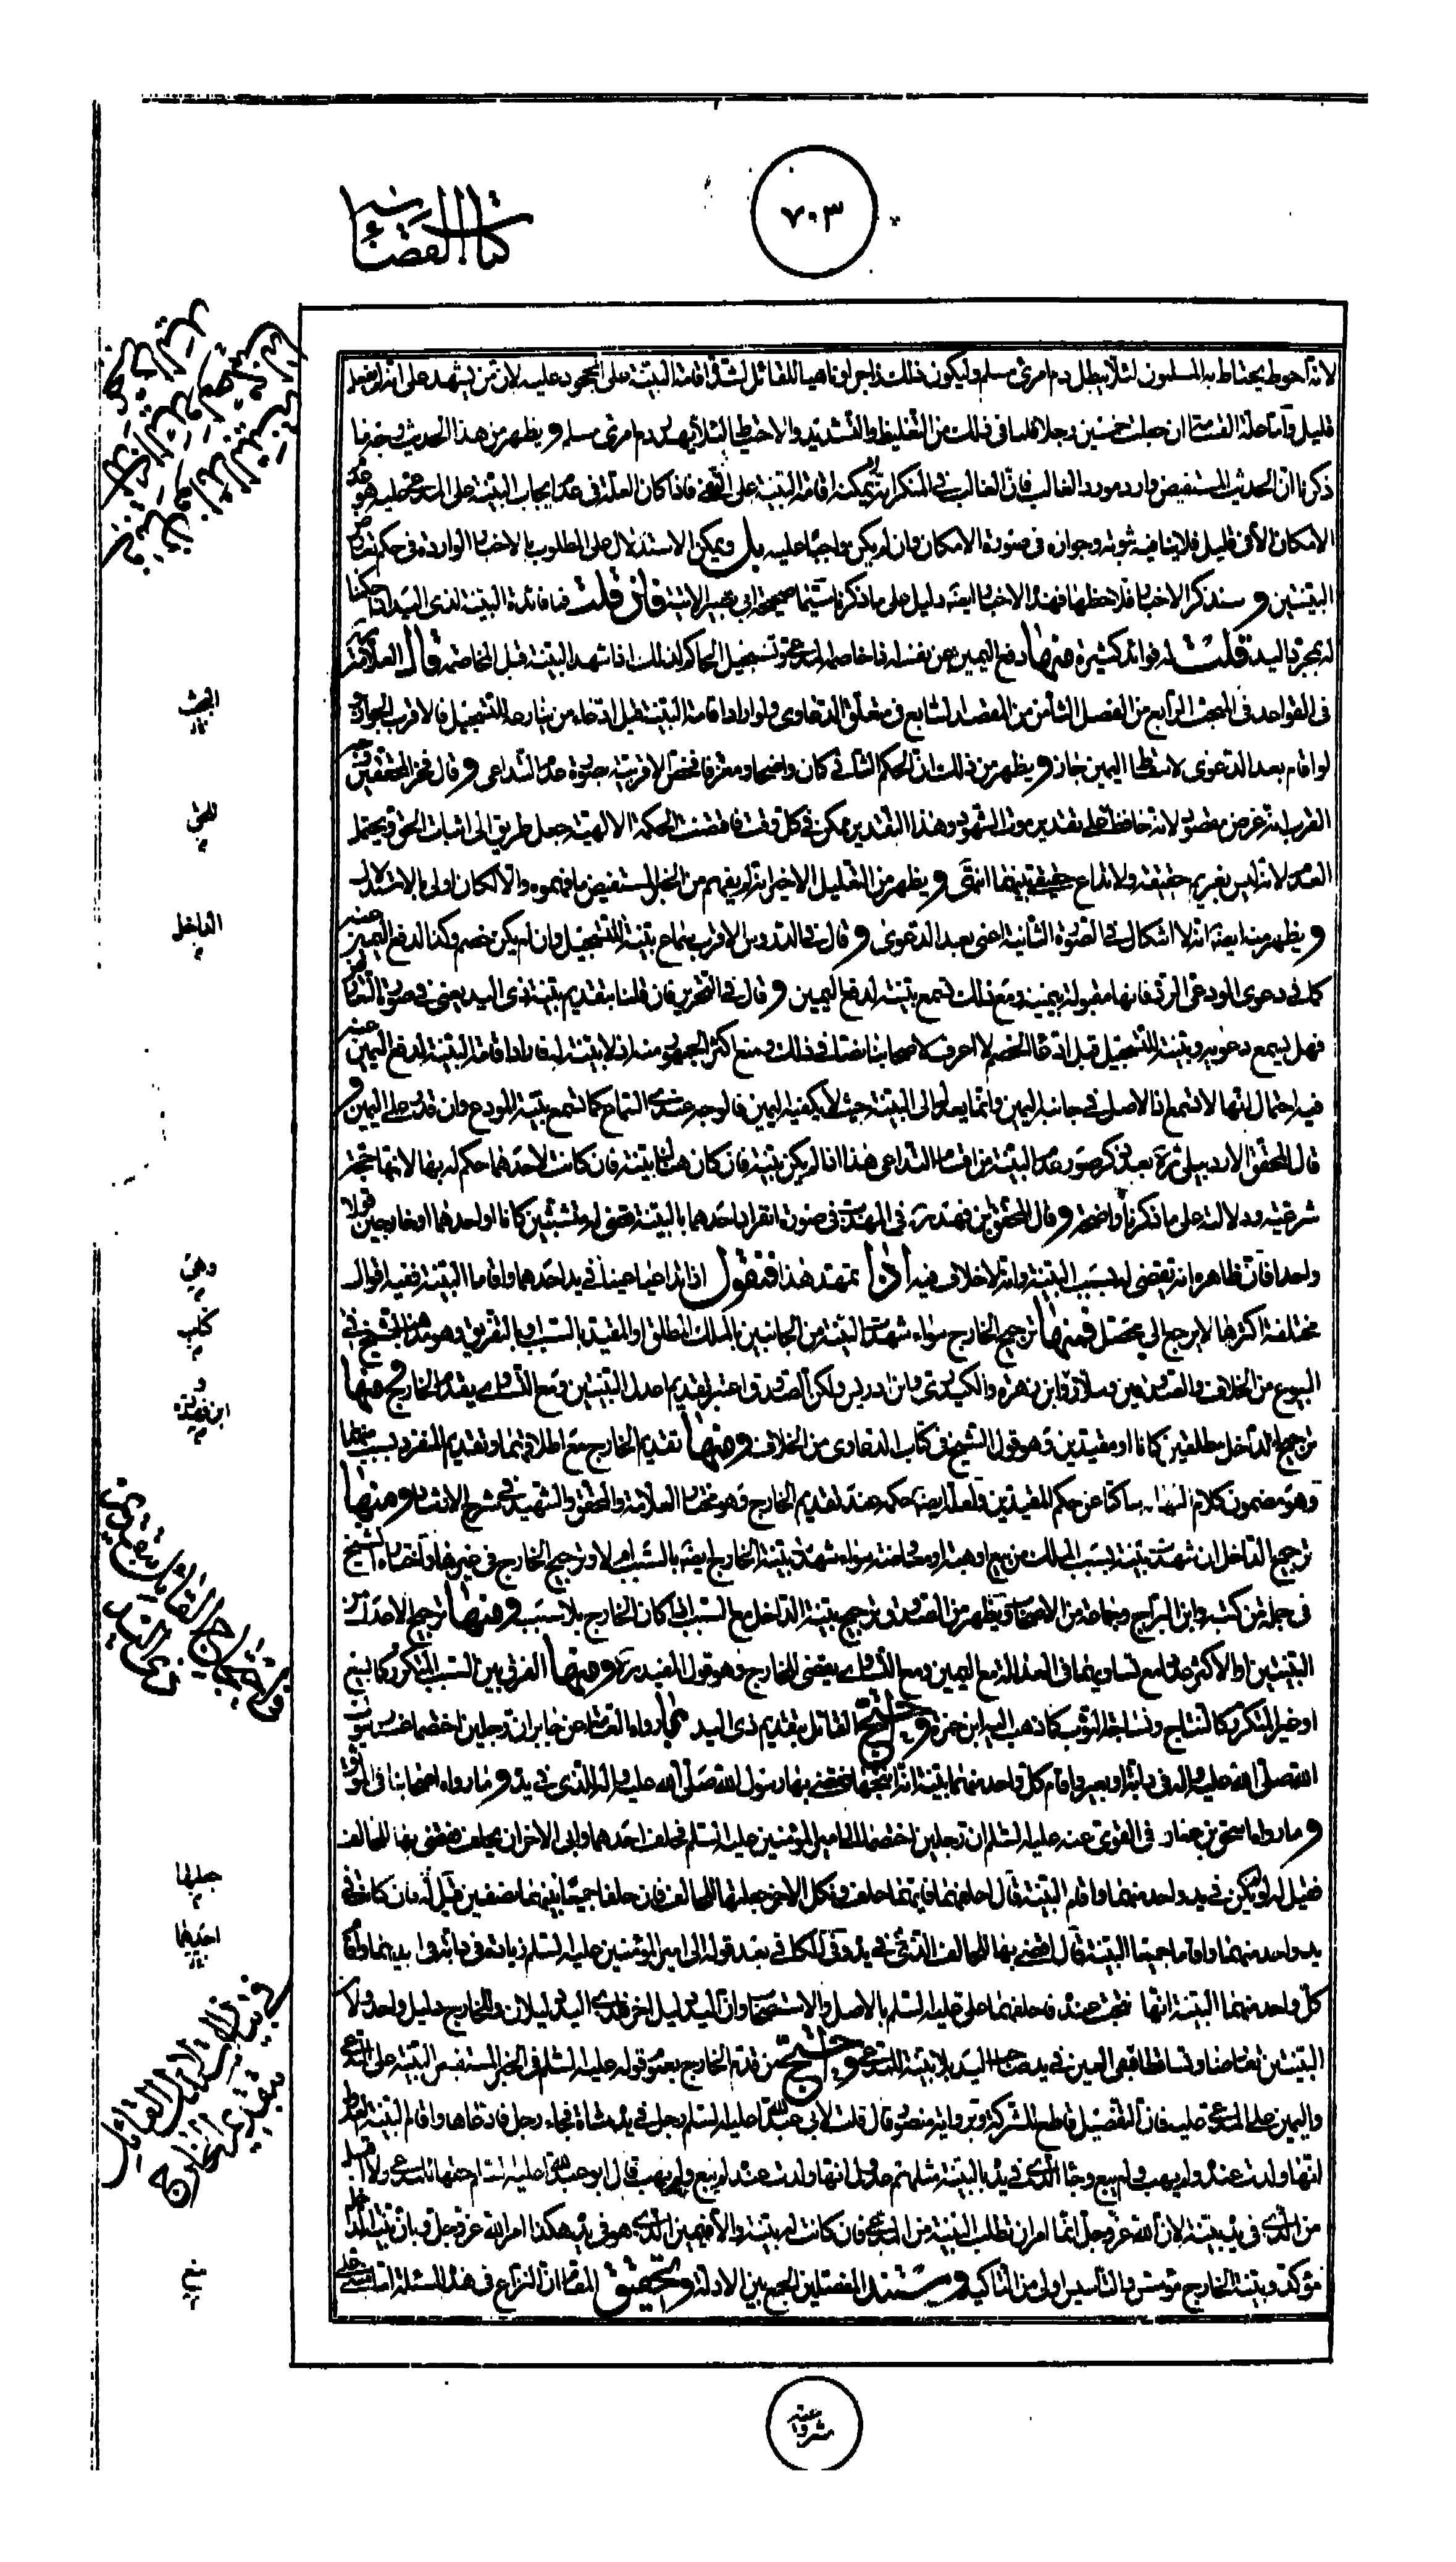 ٧٠٣
كتاب القضاء
لانه احوط يحتاط به المسلمون لئلا يبطل دم امرئ مسلم وليكون ذلك زاجرا وناهيا للقاتل لشدة اقامة البينة على الجحود عليه لان من يشهد على انه لم يفعل
قليل واما علة القسامة ان جعلت خمسين رجلا فلما فى ذلك من التغليظ والتشديد والاحتياط لئلا يهدر دم امرئ مسلم ويظهر من هذا الحديث وغيره مما
ذكرنا ان الحديث المستفيض وارد مورد الغالب فان الغالب فى المنكر انه لا يمكنه اقامة البينة على النفى فاذا كان العلة فى عدم ايجاب البينة على المدعى عليه هو عدم
الامكان الا فى قليل فلا ينافيه ثبوته وجوازه فى صورة الامكان وان لم يكن واجبا عليه بل ويمكن الاستدلال على المطلوب بالاخبار الواردة فى حكم تعارض
البينتين وسنذكر الاخبار فلاحظها فهذه الاخبار ايضا دليل على ما ذكرنا سيما صحيحة ابى بصير الاتية فان قلت فما فائدة البينة لذى اليد
له بمجرد اليد قلت له فوائد كثيرة منها دفع اليمين عن نفسه اذا خاصمه المدعى وتسجيل الحاكم لذلك اذا شهد البينة قبل المخاصمة قال العلامة
فى القواعد فى المبحث الرابع من الفصل الثامن من المقصد السابع فى متعلق الدعاوى ولو اراد اقامة البينة قبل ادعاء من ينازعه للتسجيل فالاقرب الجواز
لو اقام بعد الدعوى لاسقاط اليمين جاز ويظهر من ذلك ان الحكم الثانى كان واضحا ومعرفا فخص الاقربية بصورة عدم التداعى وقال فخر المحققين وجه
القرب انه غرض مقصود لانه حافظ على تقدير موت الشهود وهذا التقدير ممكن فى كل وقت فاقتضت الحكمة الالهية جعل طريق الى اثبات الحق ويحتمل
العدم لانه ليس بغريم حقيقة ولا تداع حقيقة بينهما انتهى ويظهر من التعليل الاخير انه لم يفهم من الخبر المستفيض ما فهموه والا لكان اولى بالاستدلال
ويظهر منه ايضا انه لا اشكال فى الصورة الثانية اعنى بعد الدعوى وقال فى الدروس الاقرب سماع بينة للتسجيل وان لم يكن خصم وكذا لدفع اليمين عنه
كما فى دعوى الودعى الرد فانها مقبولة بيمينه ومع ذلك تسمع بينته لدفع اليمين وقال فى التحرير فان قلنا بتقديم بينة ذى اليد يعنى فى صورة التعارض
فهل يسمع دعويه وبينته للتسجيل قبل ادعاء الخصم لا اعرف لاصحابنا نصا فى ذلك ومنع اكثر الجمهور منه اذ لا بينة الا فاراد اقامة البينة لدفع اليمين عنه
فيه احتمال انها لا تسمع اذ الاصل فى جانبه اليمين وانما يعدل الى البينة حيث لا يكفيه اليمين فالوجه عندى السماع كما تسمع بينة المودع وان قدر على اليمين و
قال المحقق الاردبيلى ره بعد ذكر صور عدم البينة من اقسام التداعى هذا اذا لم يكن بينة فان كان هناك بينة فان كانت لاحدهما حكم له بها لانها حجة
شرعية ودلالته على ما ذكرنا واضحة وقال المحقق ابن فهد ره فى المهذب فى صورة انفراد احدهما بالبينة يقضى له متشبثين كانا او لاحدهما او خارجين قولا
واحدا فان ظاهره انه يقضى له بسبب البينة وانه لا خلاف فيه اذا تمهد هذا فنقول اذا تداعيا عينا فى يد احدهما واقاما البينة ففيه اقوال
مختلفة اكثرها لا يرجع الى محصل فمنها ترجيح الخارج سواء شهدت البينة من الجانبين بالملك المطلق او المقيد بالسبب او بالتفريق وهو مذهب الشيخ فى
البيوع من الخلاف والصدوقين وسلار وابن زهرة والكيدرى وابن ادريس ولكن الصدوق اعتبر تقديم اعدل البينتين ومع التساوى يقدم الخارج ومنها
ترجيح الداخل مطلقين كانا او مقيدين وهو قول الشيخ فى كتاب الدعاوى من الخلاف ومنها تقديم الخارج مع اطلاقهما وتقديم المنفرد بسبب منهما
وهو مضمون كلام النهاية ساكتا عن حكم المقيدين ولعله ايضا حكمه عنده تقديم الخارج وهو مختار العلامة والمحقق والشهيد فى شرح الارشاد ومنها
ترجيح الداخل ان شهدت بينته بسبب الملك من بيع او هبة او معاوضة سواء شهدت بينة الخارج ايضا بالسبب ام لا وترجيح الخارج فى غيرها واختاره الشيخ
فى جملة من كتبه وابن البراج وجماعة من الاصحاب ويظهر من الصدوق ترجيح بينة الداخل مع السبب اذا كان الخارج بلا سبب ومنها ترجيح الاعدل من
البينتين او الاكثر عددا مع تساويهما فى العدالة مع اليمين ومع التساوى يقضى للخارج وهو قول المفيد ره ومنها الفرق بين السبب المتكرر كالبيع
او غير المتكرر كالنتاج ونساجة الثوب كما ذهب اليه ابن حمزة واحتج القائل بتقديم ذى اليد بما رواه العامة عن جابر ان رجلين اختصما عند رسول
الله صلى الله عليه واله فى دابة او بعير واقام كل واحد منهما بينة انه انتجها فقضى بها رسول الله صلى الله عليه واله للذى فى يده وما رواه اصحابنا فى
وما رواه اسحق بن عمار فى القوى عنه عليه السلم ان رجلين اختصما الى امير المؤمنين عليه السلم فحلف احدهما وابى الاخر ان يحلف فقضى بها للحالف
فقيل له لو لم تكن فى يد واحد منهما واقاما البينة قال احلفهما فايهما حلف ونكل الاخر جعلتها للحالف فان حلفا جميعا بينهما نصفين قيل له فان كانت فى
يد واحد منهما واقاما جميعا البينة قال اقضى بها للحالف الذى فى يده وفى الكافى بعد قوله الى امير المؤمنين عليه السلم زيادة فى دابة فى ايديهما واقام
كل واحد منهما البينة انها نتجت عنده فحلفهما على عليه السلم بالاصل والاستصحاب وان اليد دليل اخر فلذى اليد دليلان وللخارج دليل واحد ولان
البينتين تعارضتا وتساقطتا فبقى العين فى يد صاحب اليد بلا بينة للمدعى واحتج من قدم الخارج بعموم قوله عليه السلم فى الخبر المستفيض البينة على المدعى
واليمين على المدعى عليه فان التفصيل قاطع للشركة وبرواية منصور قال قلت لابى عبد الله عليه السلم رجل فى يده شاة فجاء رجل فادعاها واقام البينة العدول
انها ولدت عنده ولم يهب ولم يبع وجاء الذى فى يده بالبينة مثلهم عدول انها ولدت عنده لم يبع ولم يهب قال ابو عبد الله عليه السلم حقها للمدعى ولا اقبل
من الذى فى يده بينة لان الله عز وجل انما امر ان تطلب البينة من المدعى فان كانت له بينة والا فيمين الذى هو فى يده هكذا امر الله عز وجل وبان بينة الداخل
مؤكدة وبينة الخارج مؤسس والتأسيس اولى من التأكيد ومستند المفصلين الجمع بين الادلة وتحقيق المقام ان النزاع فى هذه المسئلة
البحث
الداخل
وهى
ابن فهد ره
فى احتجاج القائل بتقديم ذى اليد
جعلتها
احديهما
فى بيان استدلال القائل بتقديم الخارج